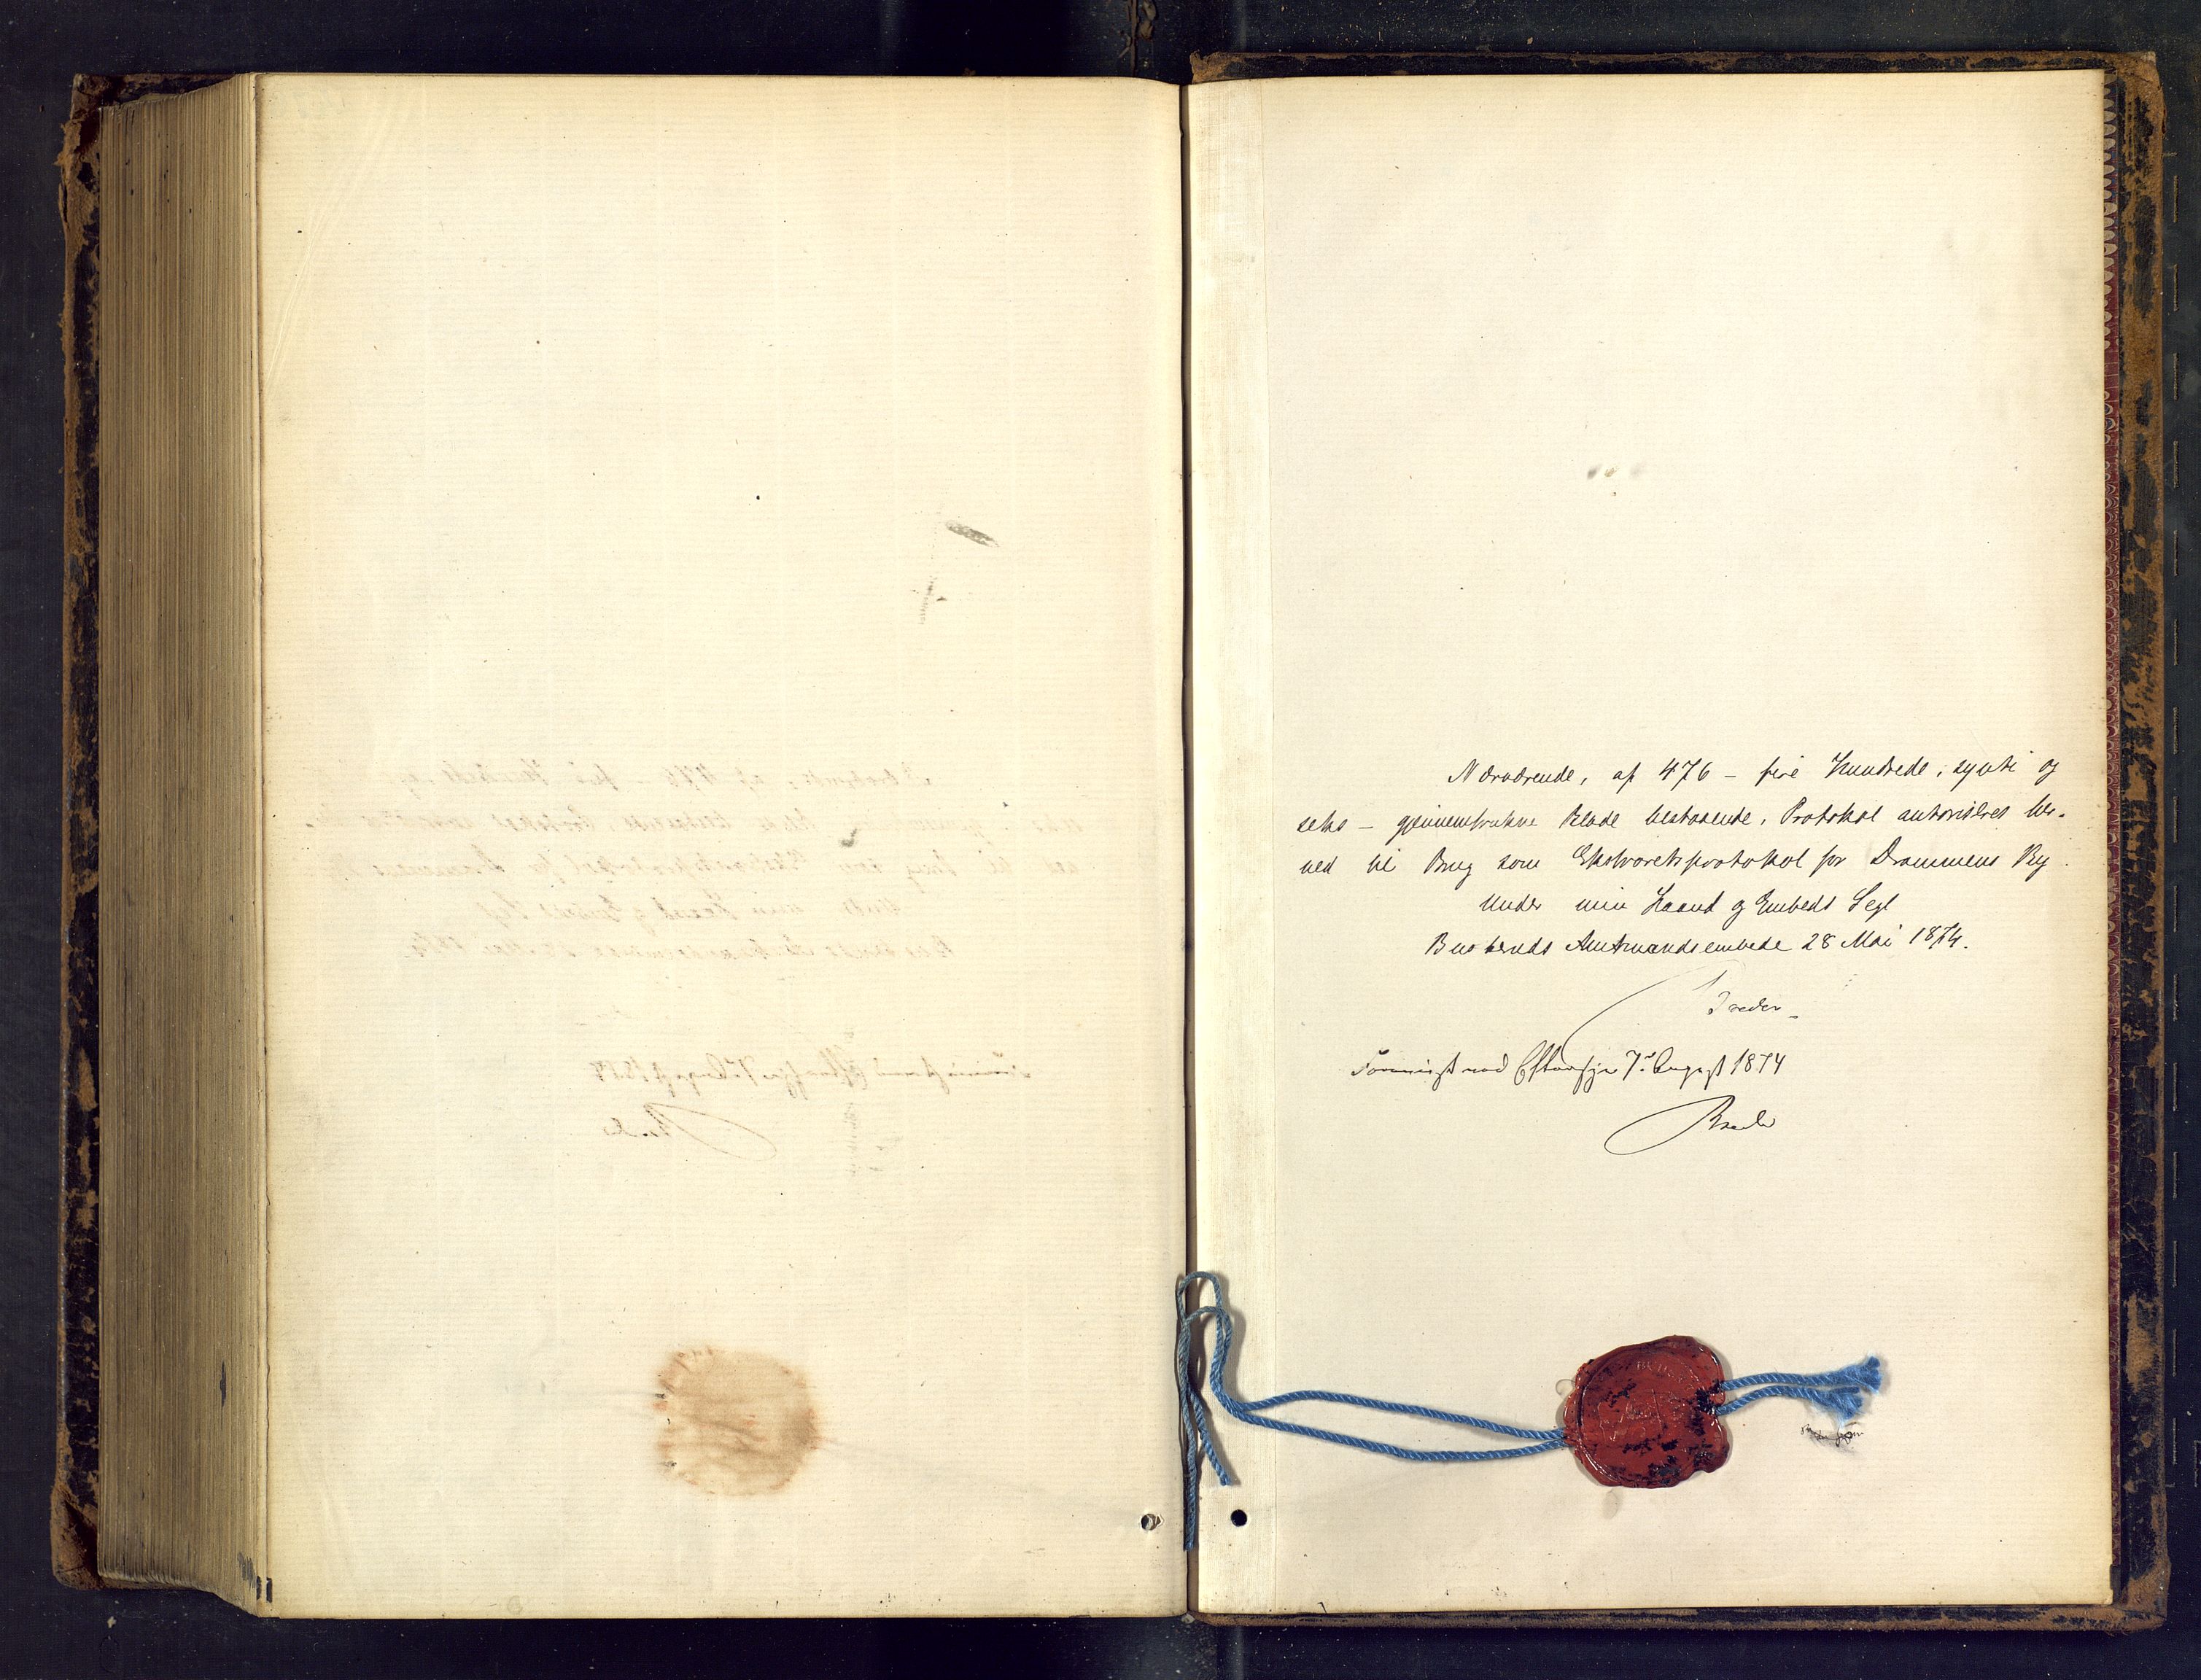 Nærværende, af 476 - fire Hundrede, sytti og
seks - gjennemtrukne Blade bestaaende, Protokol autoriseres her-
ved til Brug som Ekstraretsprotokol for Drammens By.
Under min Haand og Embeds Segl
Buskeruds Amtmandsembede 28 Mai 1874.
Foreviist ved Eftersyn 7de August 1874